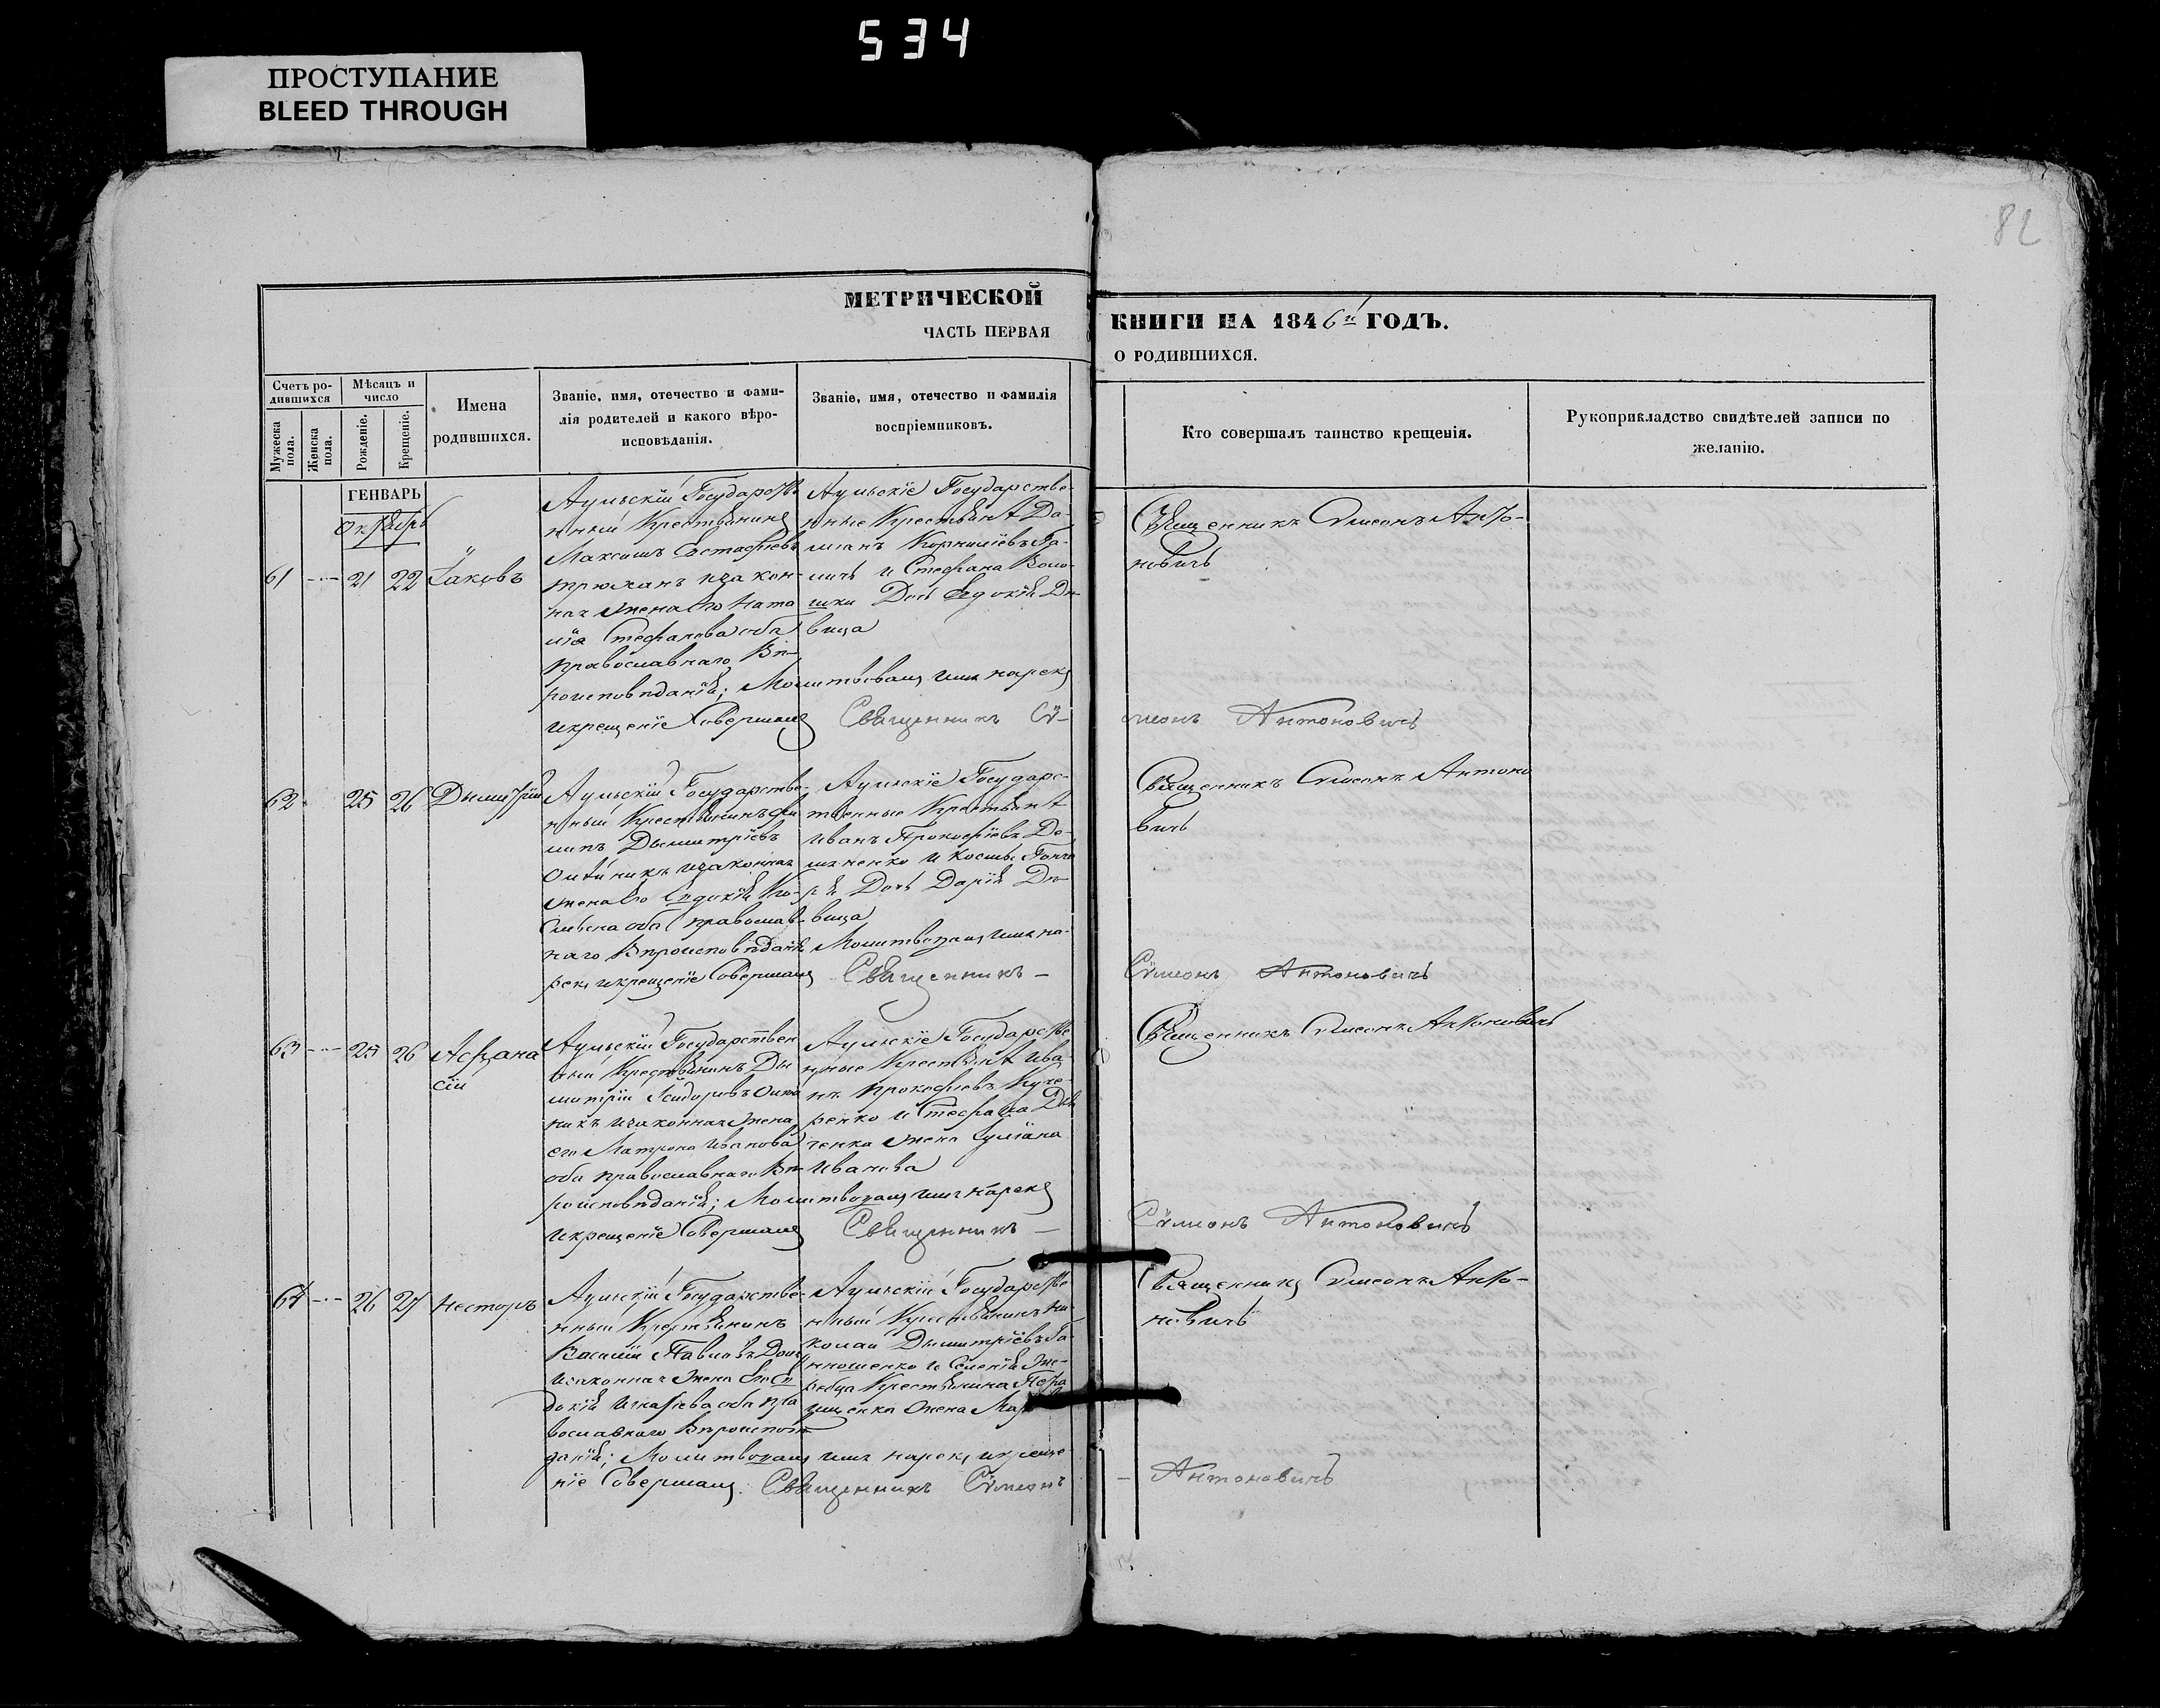 534
ПРОСТУПАНИЕ
BLEED THROUGH
82
МЕТРИЧЕСКОЙ
ЧАСТЬ ПЕРВАЯ
КНИГИ НА 1846й ГОДЪ.
О РОДИВШИХСЯ.
Счетъ ро-
дившихся
Мужеска
пола.
Женска
пола.
Мѣсяцъ и
число
Рожденіе.
Крещеніе.
Имена
родившихся.
Званіе, имя, отечество и фами-
лія родителей и какого вѣро-
исповѣданія.
Званіе, имя, отечество и фамилія
воспріемниковъ.
Кто совершалъ таинство крещенія.
Рукоприкладство свидѣтелей записи по
желанію.
ГЕНВАРЬ
Октябрь
61 21 22 Іаковъ
Аульскій Государстве-
нный Крестьянинъ
Максимъ Евстафіевъ
законъ-
ная жена его Ната
лія Стефанова оба
православнаго Вѣ-
роисповѣданія; Молитвовалъ имя нарекъ
икрещеніе Совершалъ Священникъ Сѵ-
Аульскіе Государстве-
нные Крестьяне Да-
міанъ Корниліевъ Га-
и Стефана
Дочь Евдокія Дѣ-
вица
Священникъ Сѵмеонъ Анто-
новичъ
меонъ Антоновичъ
62 25 26 Дымитрій
Аульскій Государстве-
нный Крестьянинъ Фи
липъ Дымитріевъ
Олѣйникъ изаконная
жена его Евдокія
оба православ-
наго Вѣроисповѣданія Молитвовалъ имя на-
рекъ икрещеніе Совершалъ Священникъ -
Аульскіе Государс-
твенные Крестьяне
Иванъ Прокофіевъ
и Космы
Дочь Дарія Дѣ-
вица
Священникъ Сѵмеонъ Антоно
вичъ
Сѵмеонъ Антоновичъ
63 25 26 Афана
сій
Аульскій Государствен
ный Крестьянинъ Ды
митрій Ісидоровъ Олѣй
никъ изаконная жена
его Матрона Иванова
оба православнаго Вѣ-
роисповѣданія; Молитвовалъ имя нарекъ
икрещеніе Совершалъ Священникъ -
Аульскіе Государстве
нные Крестьяне Ива-
нъ Прокофіевъ Куче-
ренко и Стефана
ченка жена Іуліана
Иванова
Священникъ Сѵмеонъ Антоновичъ
Сѵмеонъ Антоновичъ
64 26 27 Несторъ
Аульскій Государстве-
нный Крестьянинъ
Василій Павловъ
изаконная жена его Ев
докія оба пра
вославнаго Вѣроисповѣ
данія; Молитвовалъ имя нарекъ икреще
ніе Совершалъ Священникъ Сѵмеонъ
Аульскій Государстве
нный Крестьянинъ Ни
колай Дымитріевъ
и
Крестьянина
жена
Священникъ Сѵмеонъ Анто-
новичъ
- Антоновичъ